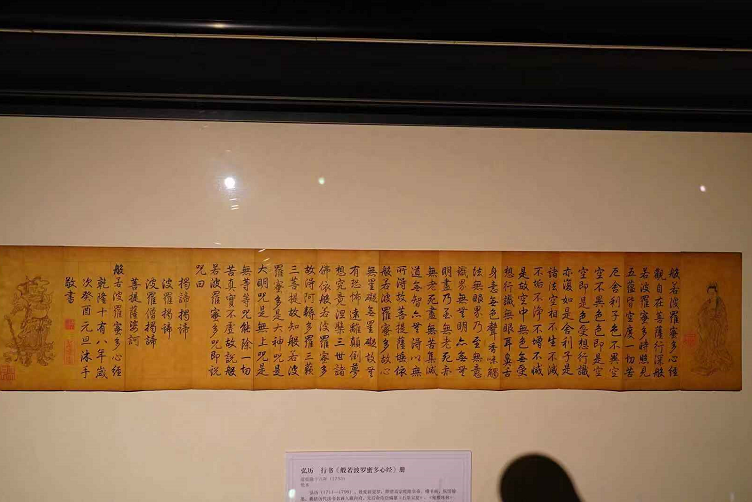 般若波羅蜜多心經
觀自在菩薩行深般
若波羅蜜多時照見
五蘊皆空度一切苦
厄舍利子色不異空
空不異色色即是空
空即是色受想行識
亦復如是舍利子是
諸法空相不生不滅
不垢不淨不增不減
是故空中無色無受
想行識無眼耳鼻舌
身意無色聲香味觸
法無眼界乃至無意
識界無無明亦無無
明盡乃至無老死亦
無老死盡無苦集滅
道無智亦無得以無
所得故菩提薩埵依
般若波羅蜜多故心
無罣礙無罣礙故無
有恐怖遠離顛倒夢
想究竟涅槃三世諸
佛依般若波羅蜜多
故得阿耨多羅三藐
三菩提故知般若波
羅蜜多是大神咒是
大明咒是無上咒是
無等等咒能除一切
苦真實不虛故說般
若波羅蜜多咒即說
咒曰
揭諦揭諦
波羅揭諦
波羅僧揭諦
菩提薩婆訶
般若波羅蜜多心經
乾隆十有八年歲
次癸酉元旦沐手
敬書
弘历 行书《般若波罗蜜多心经》册
清乾隆十八年（1753）